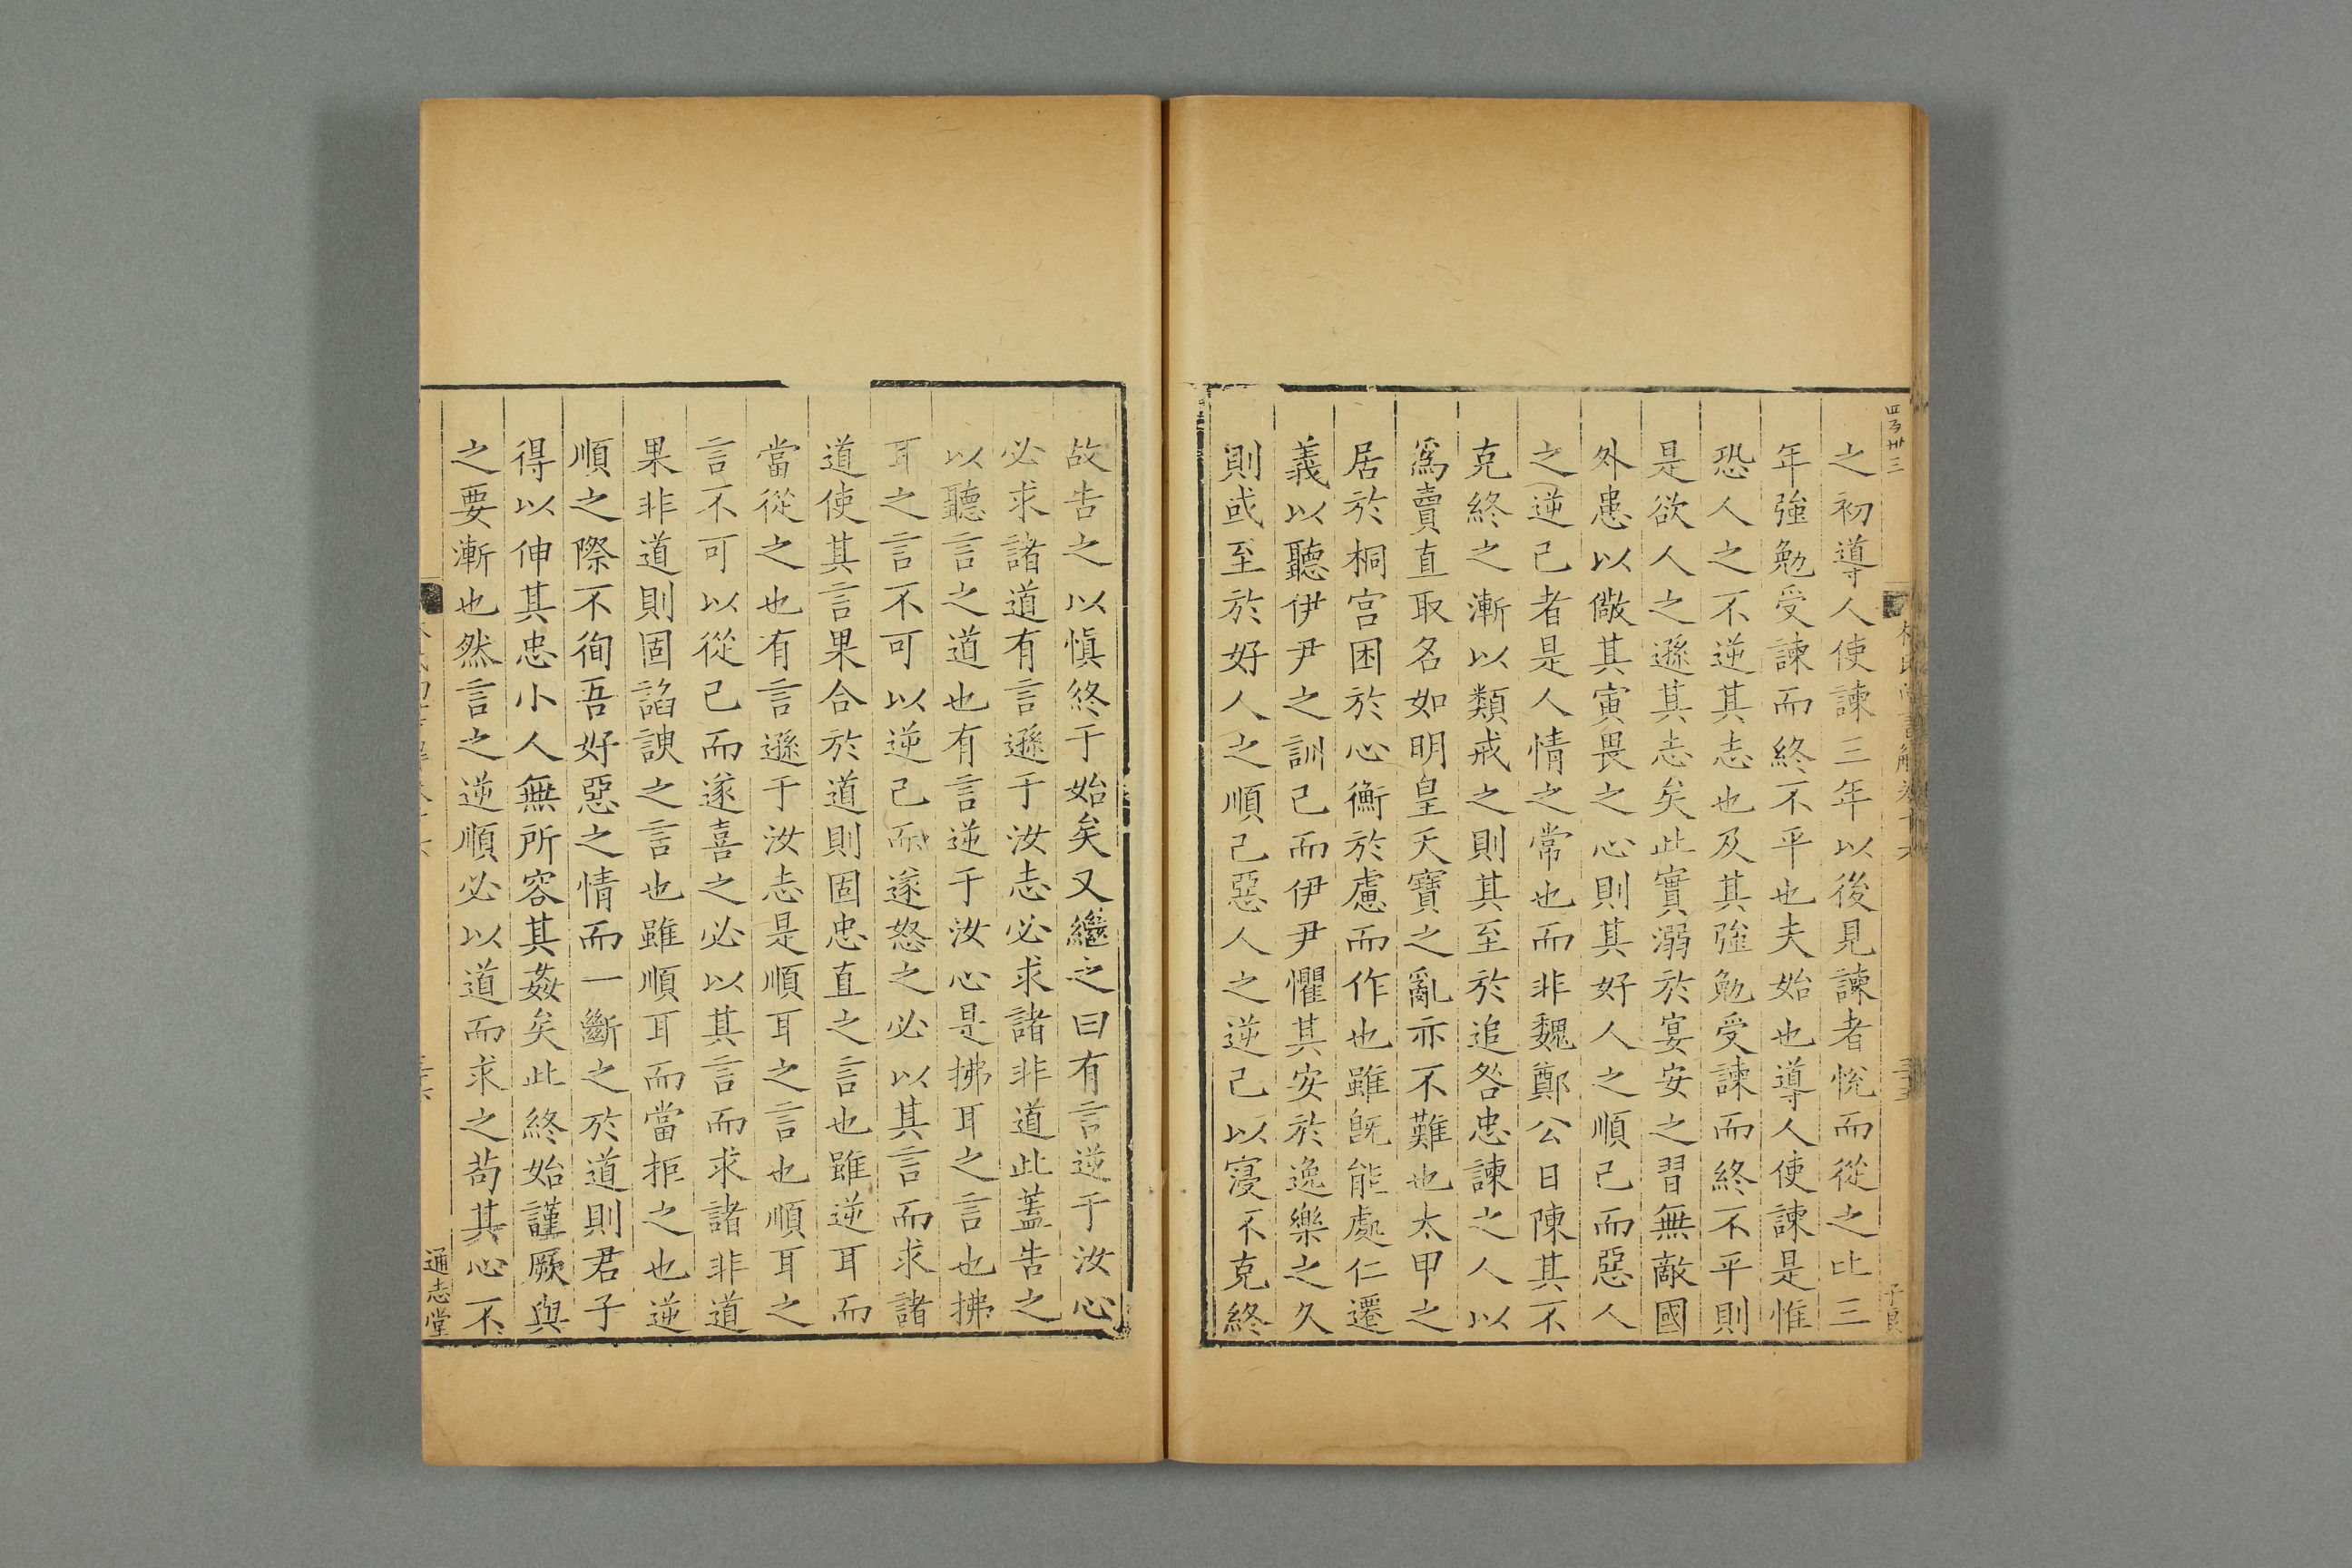 四百卅三
林氏尚書解卷十六
三十五
子良
之初導人使諫三年以後見諫者悅而從之比三
年強勉受諫而終不平也夫始也導人使諫是惟
恐人之不逆其志也及其強勉受諫而終不平則
是欲人之遜其志矣此實溺於宴安之習無敵國
外患以儆其寅畏之心則其好人之順己而惡人
之逆己者是人情之常也而非魏鄭公日陳其不
克終之漸以類戒之則其至於追咎忠諫之人以
爲賣直取名如明皇天寶之亂亦不難也太甲之
居於桐宮困於心衡於慮而作也雖旣能處仁遷
義以聽伊尹之訓己而伊尹懼其安於逸樂之久
則或至於好人之順己惡人之逆己以寖不克終
故告之以愼終于始矣又繼之曰有言逆于汝心
必求諸道有言遜于汝志必求諸非道此蓋告之
以聽言之道也有言逆于汝心是拂耳之言也拂
耳之言不可以逆己而遂怒之必以其言而求諸
道使其言果合於道則固忠直之言也雖逆耳而
當從之也有言遜于汝志是順耳之言也順耳之
言不可以從己而遂喜之必以其言而求諸非道
果非道則固諂諛之言也雖順耳而當拒之也逆
順之際不徇吾好惡之情而一斷之於道則君子
得以伸其忠小人無所容其姦矣此終始謹厥與
之要漸也然言之逆順必以道而求之苟其心不
通志堂